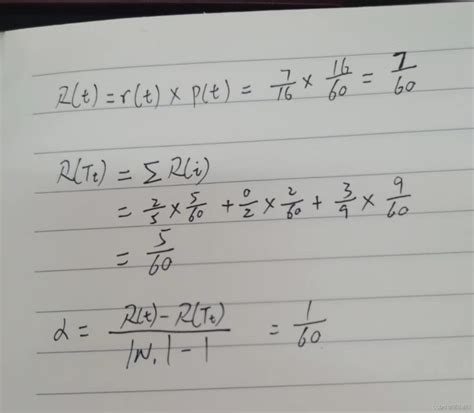 R(t) = r(t) × p(t) = 7/16 × 16/60 = 7/60
R(Tt) = ∑ R(i)
= 2/5 × 5/60 + 0/2 × 2/60 + 3/9 × 9/60
= 5/60
α = (R(t) − R(Tt)) / (|N₁| − 1) = 1/60